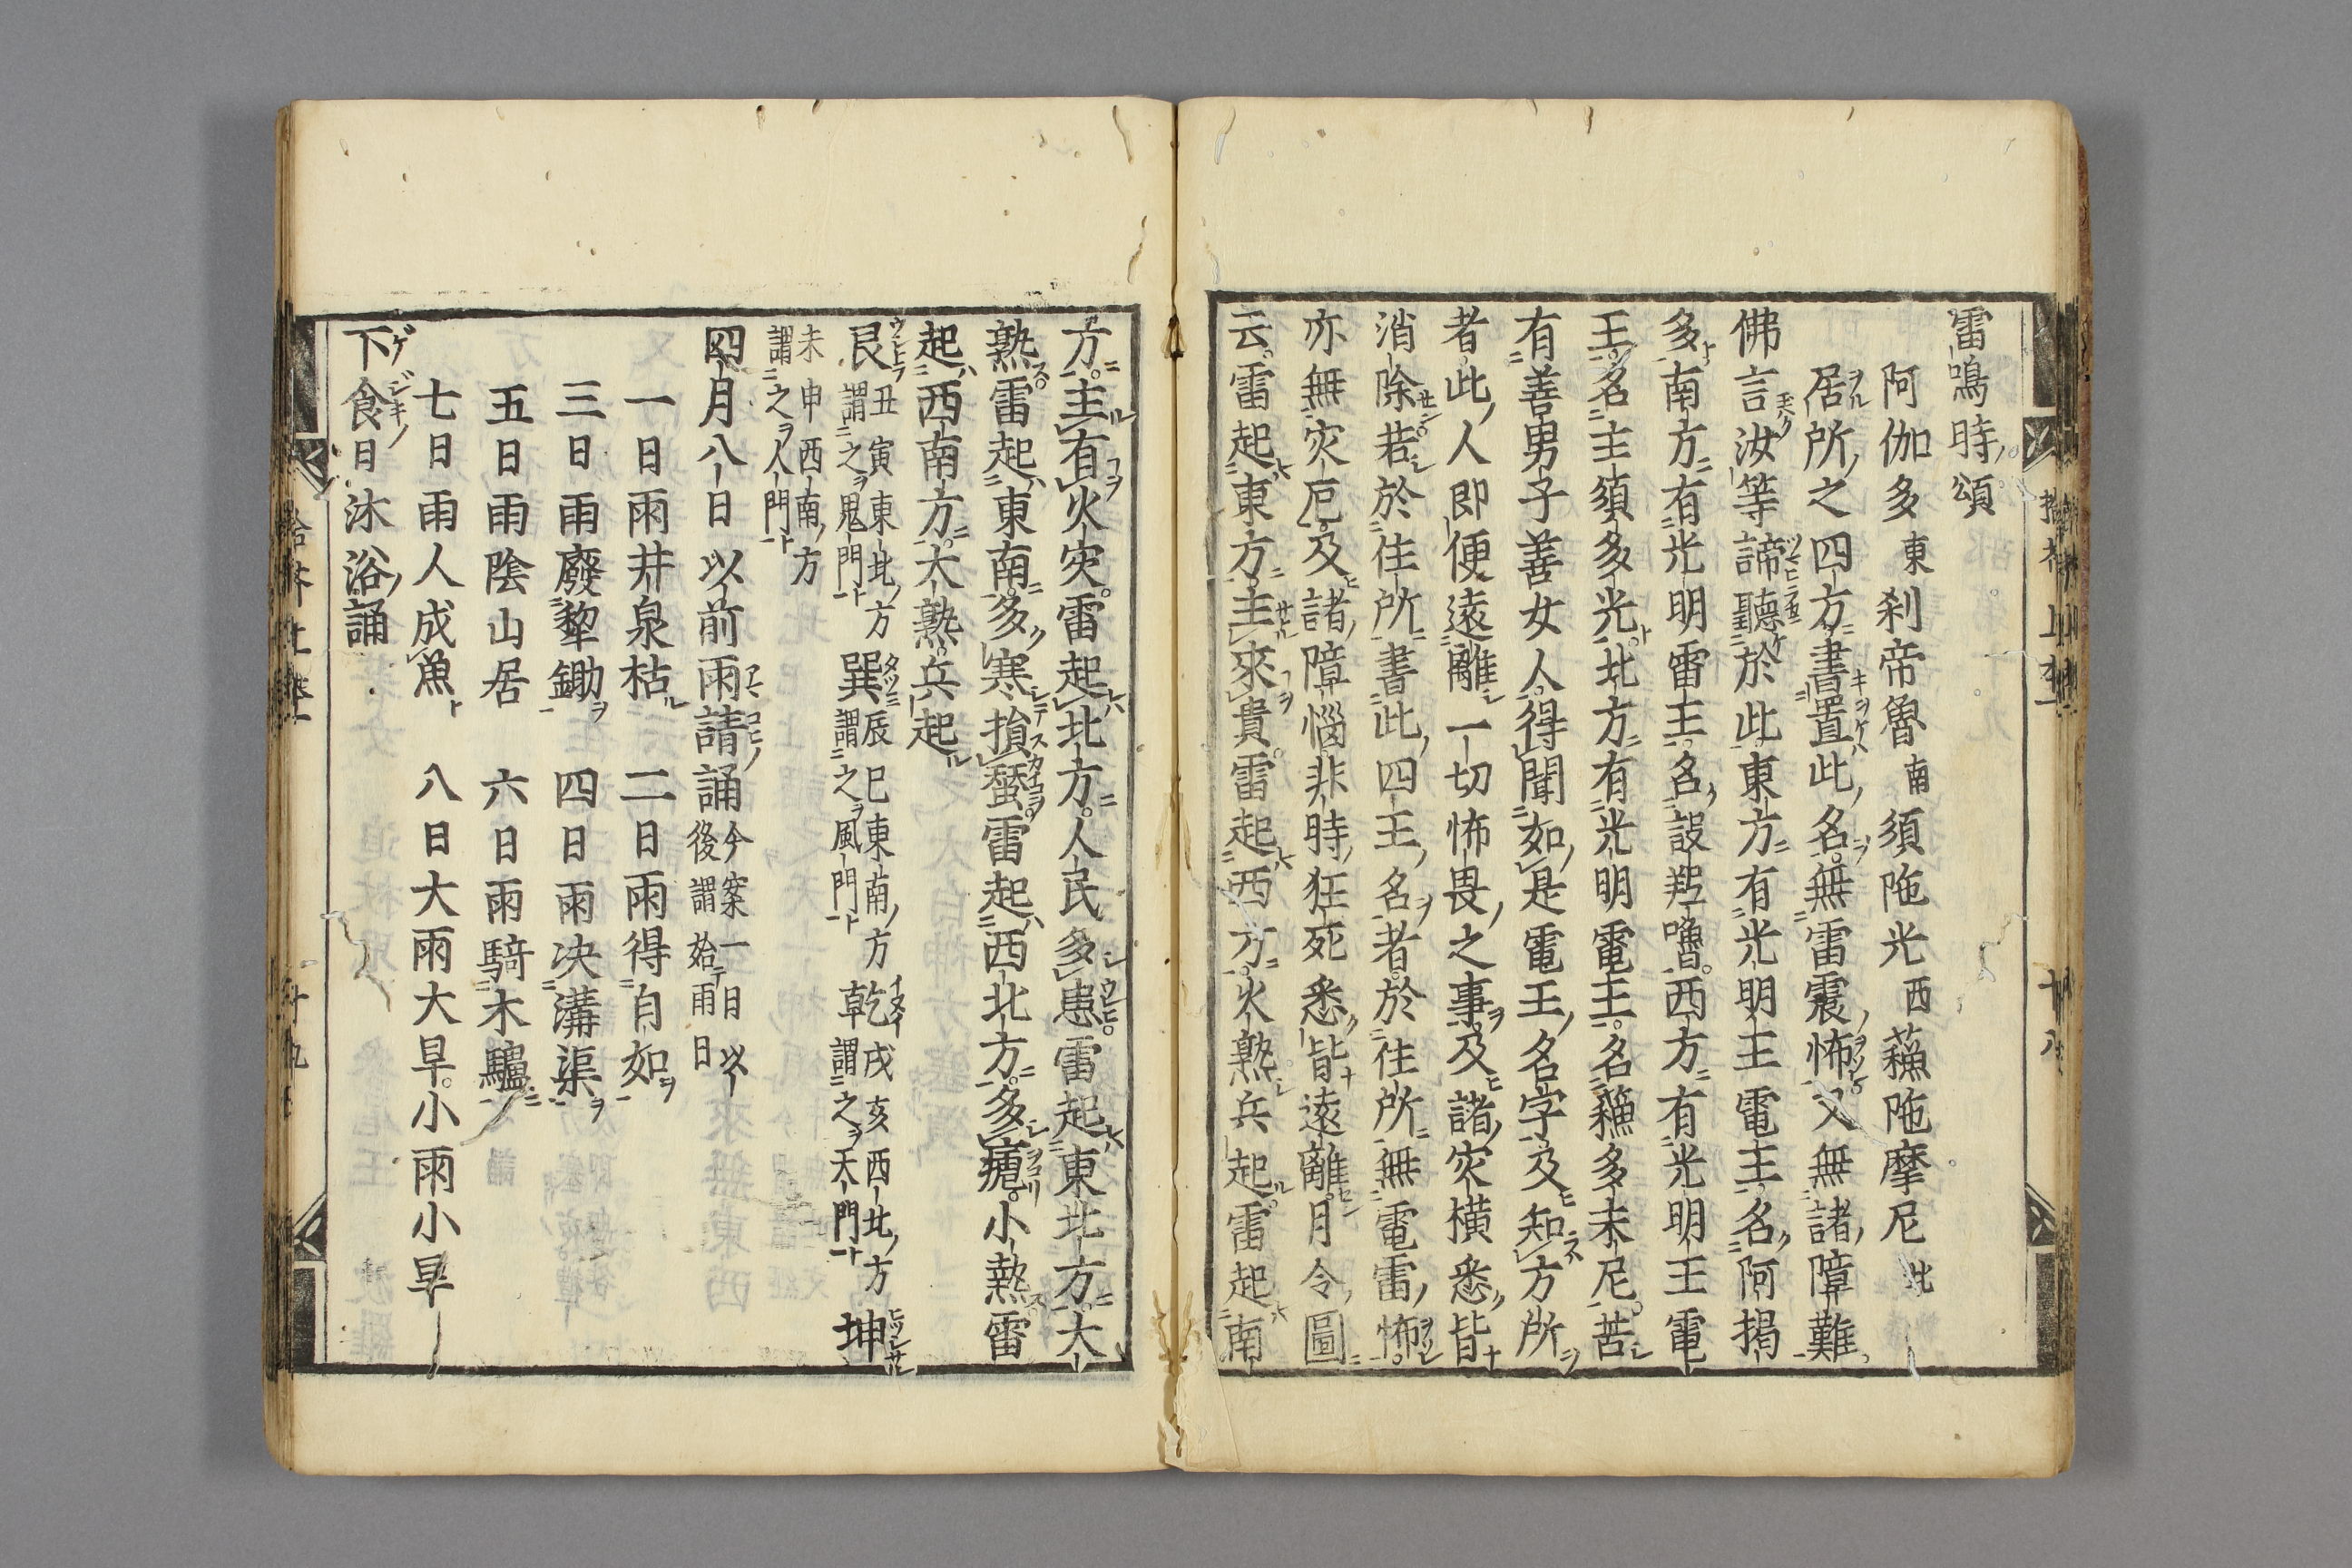 雷鳴時頌
阿伽多東 刹帝魯南 須陁光西 蘓陁摩尼北
居所之四方書置此名無雷震怖又無諸障難
佛言汝等諦聽於此東方有光明王電主名阿揭
多南方有光明雷主名設羝嚕西方有光明王電
王名主須多光北方有光明電主名蘓多末尼若
有善男子善女人得聞如是電王名字及知方所
者此人即便遠離一切怖畏之事及諸灾横悉皆
消除若於住所書此四王名者於住所無電雷怖
亦無灾厄及諸障惱非時狂死悉皆遠離月令圖
云雷起東方主來貴雷起西方火熟兵起雷起南
方主有火灾雷起北方人民多患雷起東北方大
熟雷起東南多寒損蚕雷起西北方多瘧小熱雷
起西南方大熟兵起
艮 丑寅東北方謂之鬼門 巽 辰巳東南方謂之風門 乾 戌亥西北方謂之天門 坤
未申西南方謂之人門
四月八日以前雨請誦 今案一日以後謂始雨日
一日雨井泉枯 二日雨得自如
三日雨廢犂鋤 四日雨决溝渠
五日雨陰山居 六日雨騎木驢
七日雨人成魚 八日大雨大旱小雨小旱
下食日沐浴誦